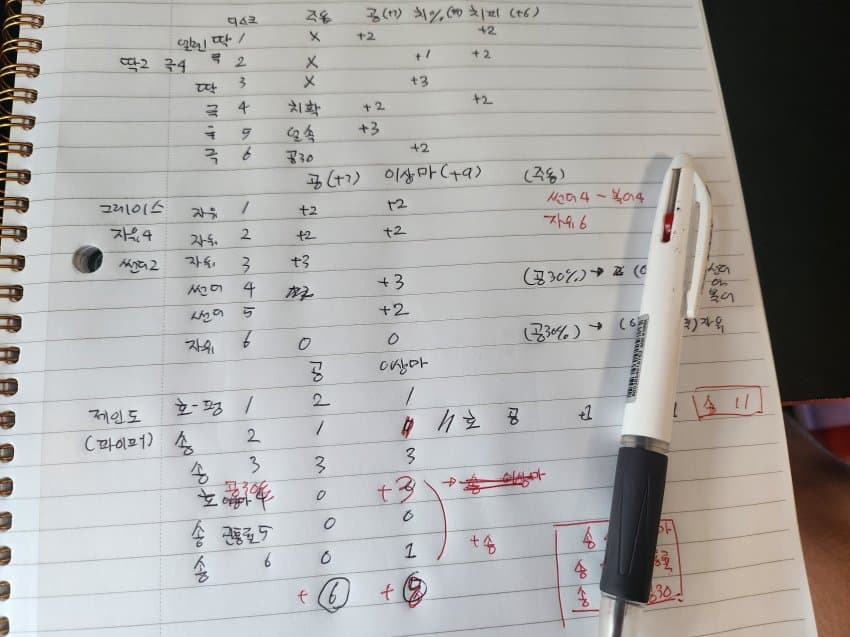 디스크 주옵 공(+7) 치% 치피 (+6)
엘린 딱 1 X +2 +2
딱2 극4 극 2 X +1 +2
딱 3 X +3
극 4 치확 +2 +2
극 5 +3
극 6 공30 +2
공(+7) 이상마(+9) (주옵)
그레이스 자유 1 +2 +2 썬더4 - 복어4
자유4 자유 2 +2 +2 자유6
썬더2 자유 3 +3
썬더 4 +3 (공30%) → 썬더 or 복어
썬더 5 +2
자유 6 0 0 (공30%) → 자유
공 이상마
제인도 호-펑 1 2 1 호 공 +1 1 송 11
(파이퍼) 송 2 1
송 3 3 3
호 공30% 4 0 +3 → 송 이상마
송 관통률 5 0 0
송 6 0 1 +송
+ 6 +
송
송
송 30